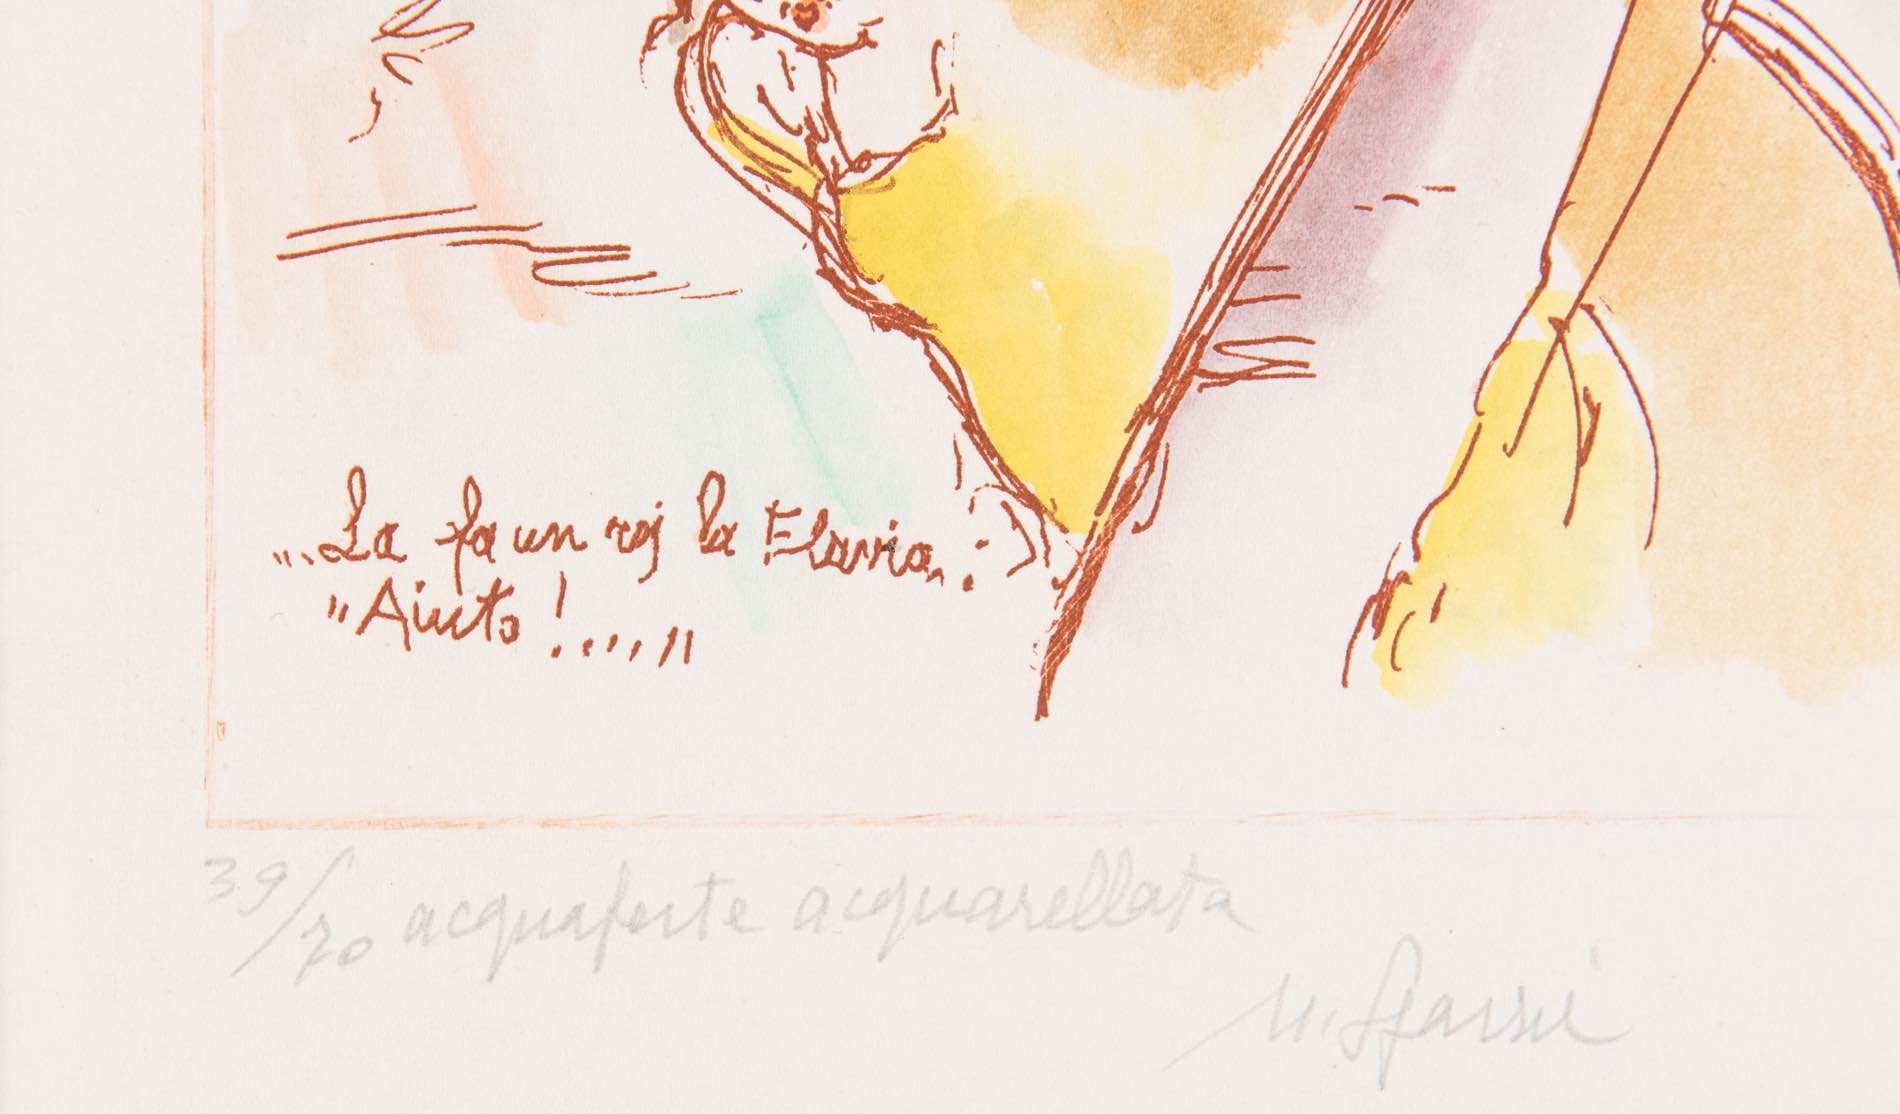 "...La fa un roj la Flavia.:
"Aiuto!....."
39/70 acquaforte acquarellata